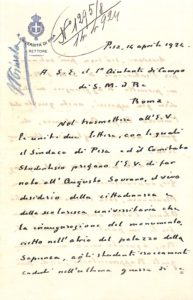 RETTORE
N° 1295/8
Pisa, 14 aprile 1924.
A S. E. il 1° Aiutante di Campo
di S. M. il Re
Roma
Nel trasmettere all'E. V.
le unite due lettere, con le quali
il Sindaco di Pisa ed il Comitato
Studentesco pregano l'E. V. di far
noto all'Augusto Sovrano, il vivo
desiderio della cittadinanza e
della scolaresca universitaria che
la inaugurazione del monumento,
eretto nell'atrio del palazzo della
Sapienza, agli studenti
caduti nell'ultima guerra di